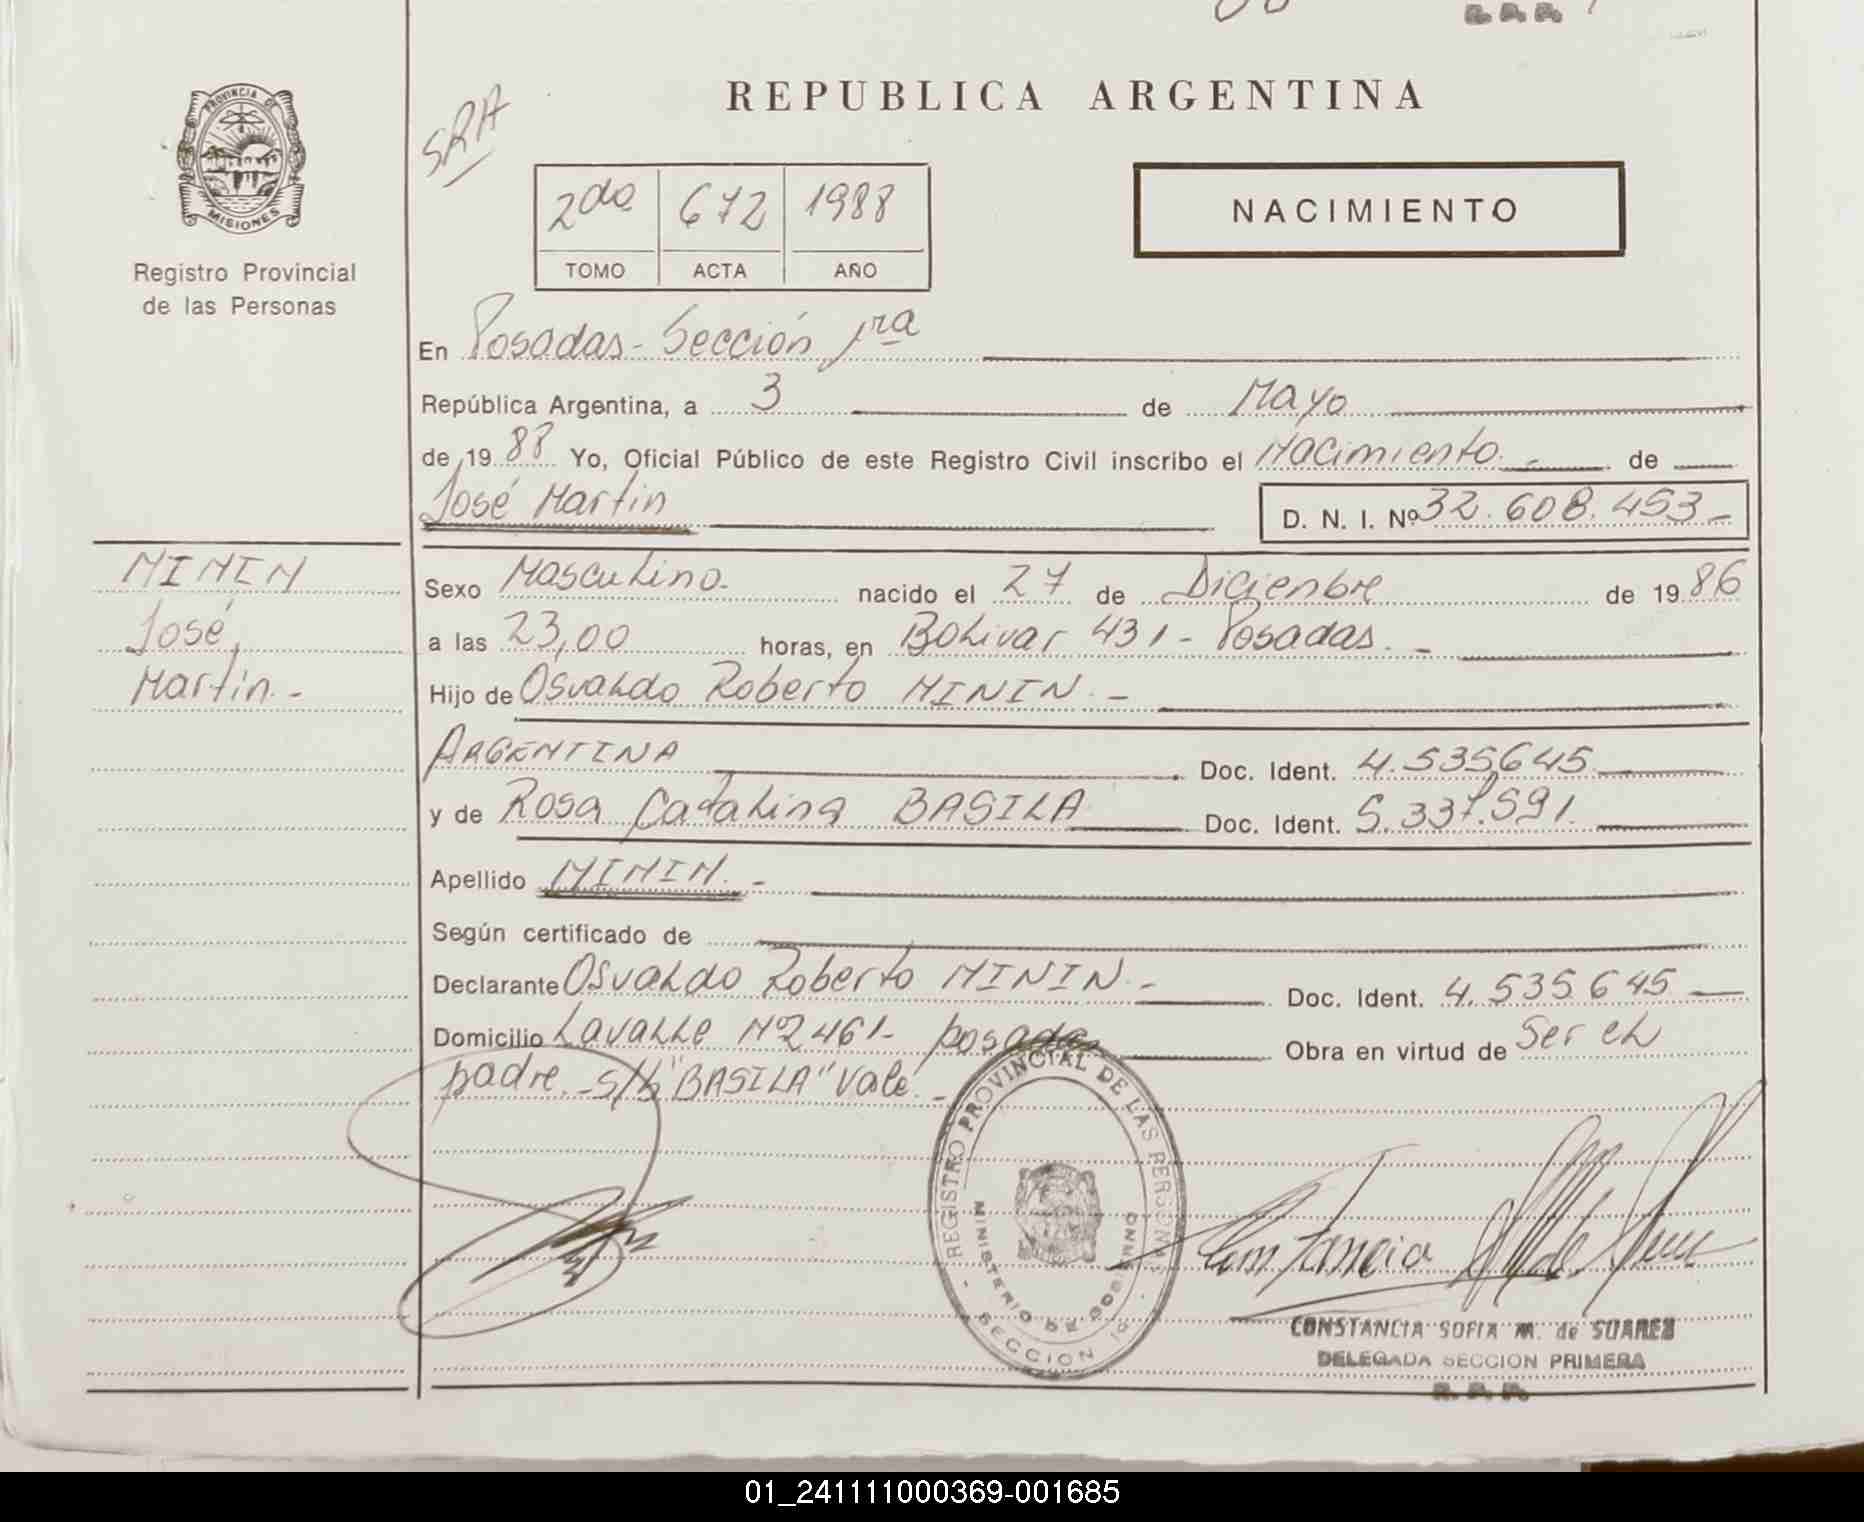 R. P. P.
PROVINCIA DE
MISIONES
Registro Provincial
de las Personas
SRA
REPUBLICA ARGENTINA
2do 672 1988
TOMO ACTA AÑO
NACIMIENTO
En Posadas - Sección 1ra
República Argentina, a 3 de Mayo
de 1988 Yo, Oficial Público de este Registro Civil inscribo el Nacimiento.- de
José Martin D. N. I. Nº 32.608.453-
MININ
José,
Martin.-
Sexo Masculino. nacido el 27 de Diciembre de 1986
a las 23,00 horas, en Bolivar 431 - Posadas.-
Hijo de Osvaldo Roberto MININ.-
ARGENTINA Doc. Ident. 4.535645
y de Rosa Catalina BASILA Doc. Ident. 5.337.591.
Apellido MININ.-
Según certificado de
Declarante Osvaldo Roberto MININ.- Doc. Ident. 4.535645
Domicilio Lavalle Nº2461- posadas Obra en virtud de Ser el
padre.- s/b "BASILA" Vale.-
REGISTRO PROVINCIAL DE LAS PERSONAS
MINISTERIO DE GOBIERNO
SECCION 1a
Constancia
CONSTANCIA SOFIA M. de SUAREZ
DELEGADA SECCION PRIMERA
R. P. P.
01_241111000369-001685